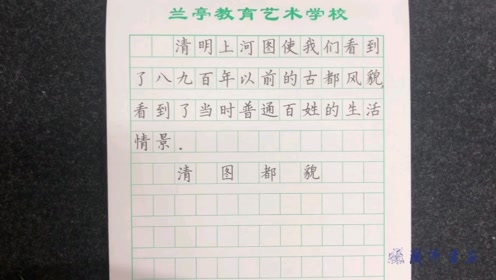 兰亭教育艺术学校
清明上河图使我们看到
了八九百年以前的古都风貌,
看到了当时普通百姓的生活
情景.
清 图 都 貌